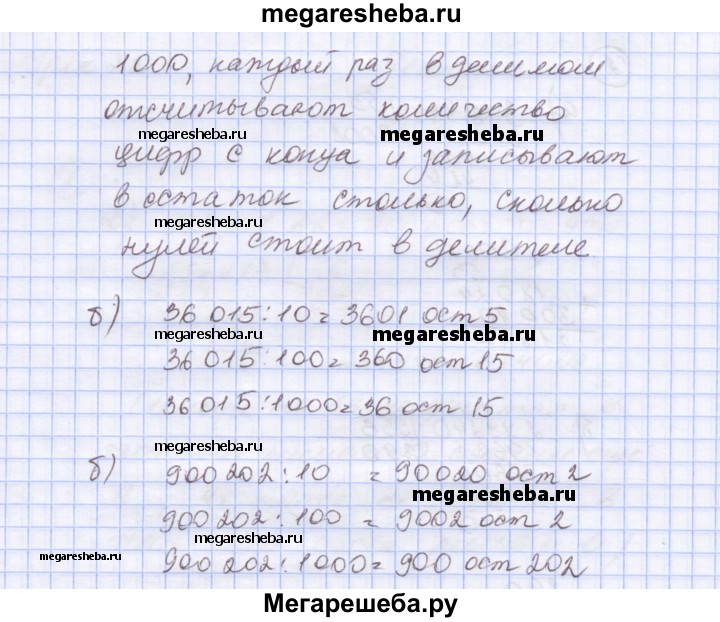 megaresheba.ru
1000, каждый раз в делимом
отсчитывают количество
megaresheba.ru megaresheba.ru
цифр с конца и записывают
в остаток столько, сколько
megaresheba.ru
нулей стоит в делителе
б) 36 015:10=3601 ост 5
megaresheba.ru megaresheba.ru
36 015:100=360 ост 15
36 015:1000=36 ост 15
megaresheba.ru
б) 900 202:10 =90020 ост 2
megaresheba.ru megaresheba.ru
900 202:100 = 9002 ост 2
megaresheba.ru
900 202:1000=900 ост 202
Мегарешеба.ру